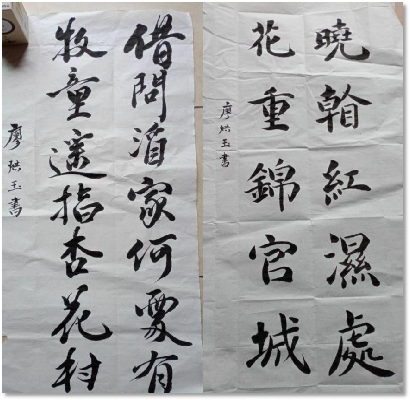 借問酒家何處有
牧童遥指杏花村
廖洪玉書
曉看紅濕處
花重錦官城
廖洪玉書